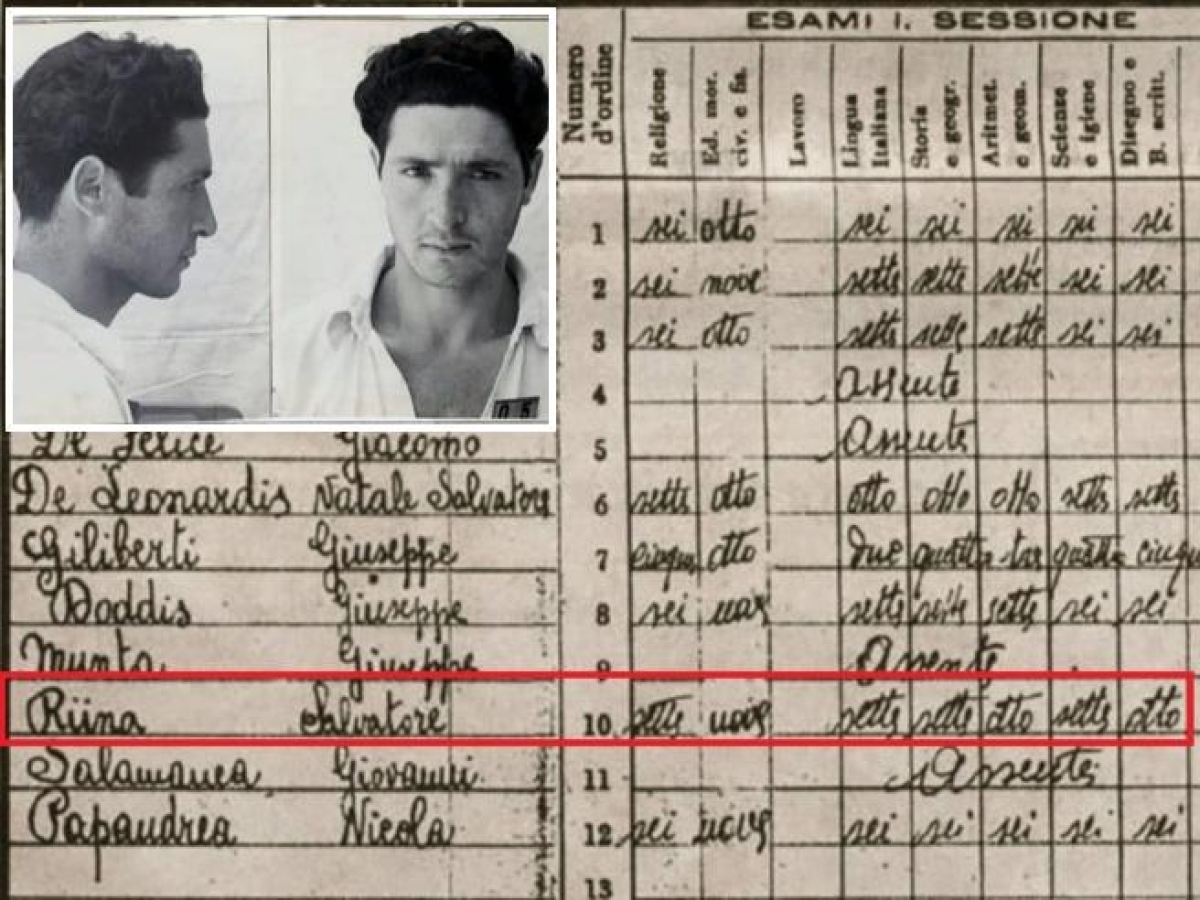 ESAMI I. SESSIONE
Numero d'ordine Religione Ed. mor. civ. e fis. Lavoro Lingua Italiana Storia e geogr. Aritmet. e geom. Scienze e igiene Disegno e B. scritt.
1 sei otto sei sei sei sei sei
2 sei nove sette sette sette sei sei
3 sei otto sette sette sette sei sei
4 Assente
De Felice Giacomo 5 Assente
De Leonardis Natale Salvatore 6 sette otto otto otto otto sette sette
Giliberti Giuseppe 7 cinque otto due quattro tre quattro cinque
Doddis Giuseppe 8 sei nove sette sette sette sei sei
Munta Giuseppe 9 Assente
Riina Salvatore 10 sette nove sette sette otto sette otto
Salamanca Giovanni 11 Assente
Papandrea Nicola 12 sei nove sei sei sei sei sei
13